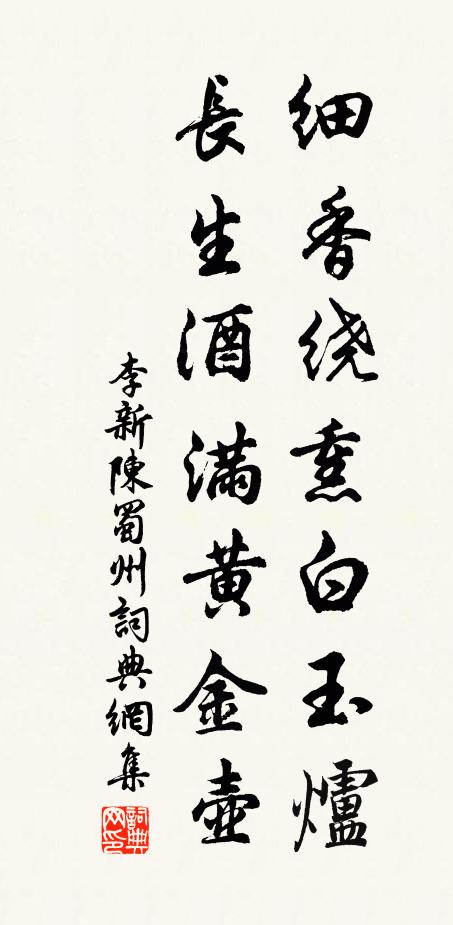 细香绕熏白玉爐
長生酒满黄金壺
李新陳蜀州詞典網集
詞典網印